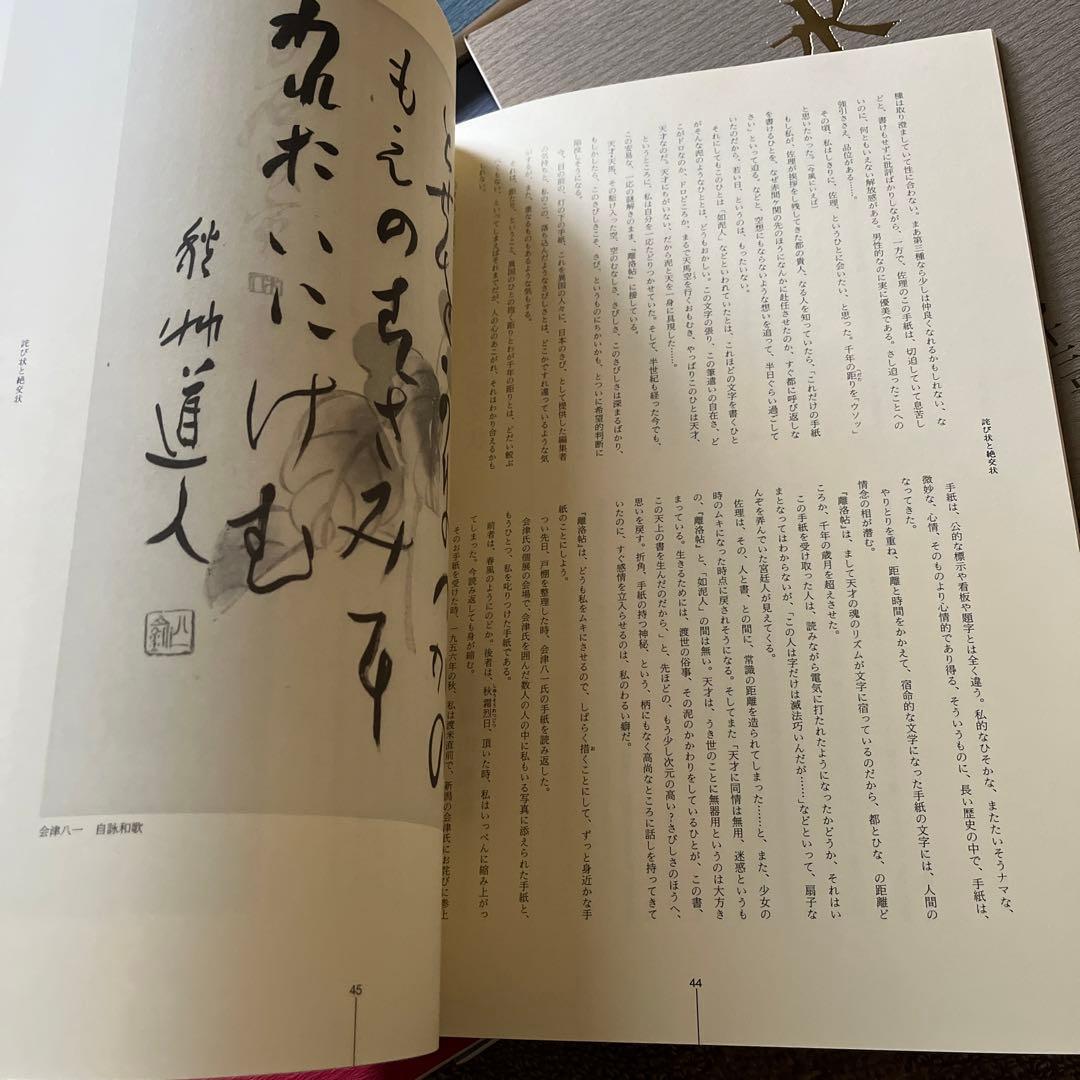 水
詫び状と絶交状
種は取り澄ましていて性に合わない。まあ第三種なら少しは仲良くなれるかもしれない、な
どと、書けもせずに批評ばかりしながら、一方で、佐理のこの手紙は、切迫していて息苦し
いのに、何ともいえない解放感がある。男性的なのに実に優美である。さし迫ったことへの
強引ささえ、品位がある……。
その頃、私はしきりに、佐理、というひとに会いたい、と思った。千年の距りを「ウソッ」
と思いたかった（今風にいえば）
もし私が、佐理が挨拶をし残してきた都の貴人、なる人を知っていたら、「これだけの手紙
を書けるひとを、なぜ赤間ヶ関の先のほうになんかに赴任させたのか、すぐ都に呼び返しな
さい」といって迫る。などと、空想にもならないような想いを追って、半日ぐらい過ごして
いたのだから、若い日、というのは、もったいない。
それにしてもこのひとは「如泥人」などといわれていたとは、これほどの文字を書くひと
がそんな泥のようなひととは、どうもおかしい。この文字の張り、この筆遣いの自在さ、ど
こがドロなのか、ドロどころか、まるで天馬空を行くおもむき、やっぱりこのひとは天才、
天才なのだ。天才にちがいない、だから泥と天を一身に具現した……。
というところに、私は自分を一応たどりつかせていた。そして、半世紀も経った今でも、
この安易な、一応の謎解きのまま、「離洛帖」に接している。
天才天馬、その駆け入った空、空のむなしさ、さびしさ、このさびしさは深まるばかり、
もしかしたら、このさびしさこそ、さび、というものにちかいかも、とついに希望的判断に
階段しそうになる。
今、目の前の、灯の下の手紙、これを異国の人々に、日本のさび、として提供した編集者
の気持ちと、私のこの、落ち込んだようなさびしさとは、どこかですれ違っているような気
がするが、また、重なるものもあるような気もする。
それは、距たり、ということ、異国のひとの抱く距りとわが千年の距りとは、どだい較ぶ
べくもない、といってしまえばそれまでだが、人の心のあこがれ、それはわかり合えるかも
しれない。
手紙は、公的な標示や看板や題字とは全く違う。私的なひそかな、またたいそうナマな、
微妙な、心情、そのものより心情的であり得る、そういうものに、長い歴史の中で、手紙は、
なってきた。
やりとりを重ね、距離と時間をかかえて、宿命的な文字になった手紙の文字には、人間の
情念の相が潜む。
『離洛帖』は、まして天才の魂のリズムが文字に宿っているのだから、都とひな、の距離ど
ころか、千年の歳月を超えさせた。
この手紙を受け取った人は、読みながら電気に打たれたようになったかどうか、それはい
まとなってはわからないが、「この人は字だけは滅法巧いんだが……」などといって、扇子な
んぞを弄んでいた宮廷人が見えてくる。
佐理は、その、人と書、との間に、常識の距離を造られてしまった……と、また、少女の
時のムキになった時点に戻されそうになる。そしてまた「天才に同情は無用、迷惑というも
の、『離洛帖』と、「如泥人」の間は無い。天才は、うき世のことに無器用というのは大方き
まっている。生きるためには、渡世の俗事、その泥のかかわりをしているひとが、この書、
この天上の書を生んだのだから」、と、先ほどの、もう少し次元の高い？さびしさのほうへ、
思いを戻す。折角、手紙の持つ神秘、という、柄にもなく高尚なところに話しを持ってきて
いたのに、すぐ感情を立入らせるのは、私のわるい癖だ。
『離洛帖』は、どうも私をムキにさせるので、しばらく措くことにして、ずっと身近かな手
紙のことにしよう。
つい先日、戸棚を整理した時、会津八一氏の手紙を読み返した。
会津氏の個展の会場で、会津氏を囲んだ数人の人の中に私もいる写真に添えられた手紙と、
もうひとつ、私を叱りつけた手紙である。
前者は、春風のようにのどか。後者は、秋霜烈日、頂いた時、私はいっぺんに縮み上がっ
てしまった。今読み返しても身が縮む。
そのお手紙を受けた時、一九五六年の秋、私は渡米直前で、新潟の会津氏にお詫びに参上
44
もえのすさみに
われおいにけむ
秋艸道人
八一
会津八一　自詠和歌
詫び状と絶交状
45